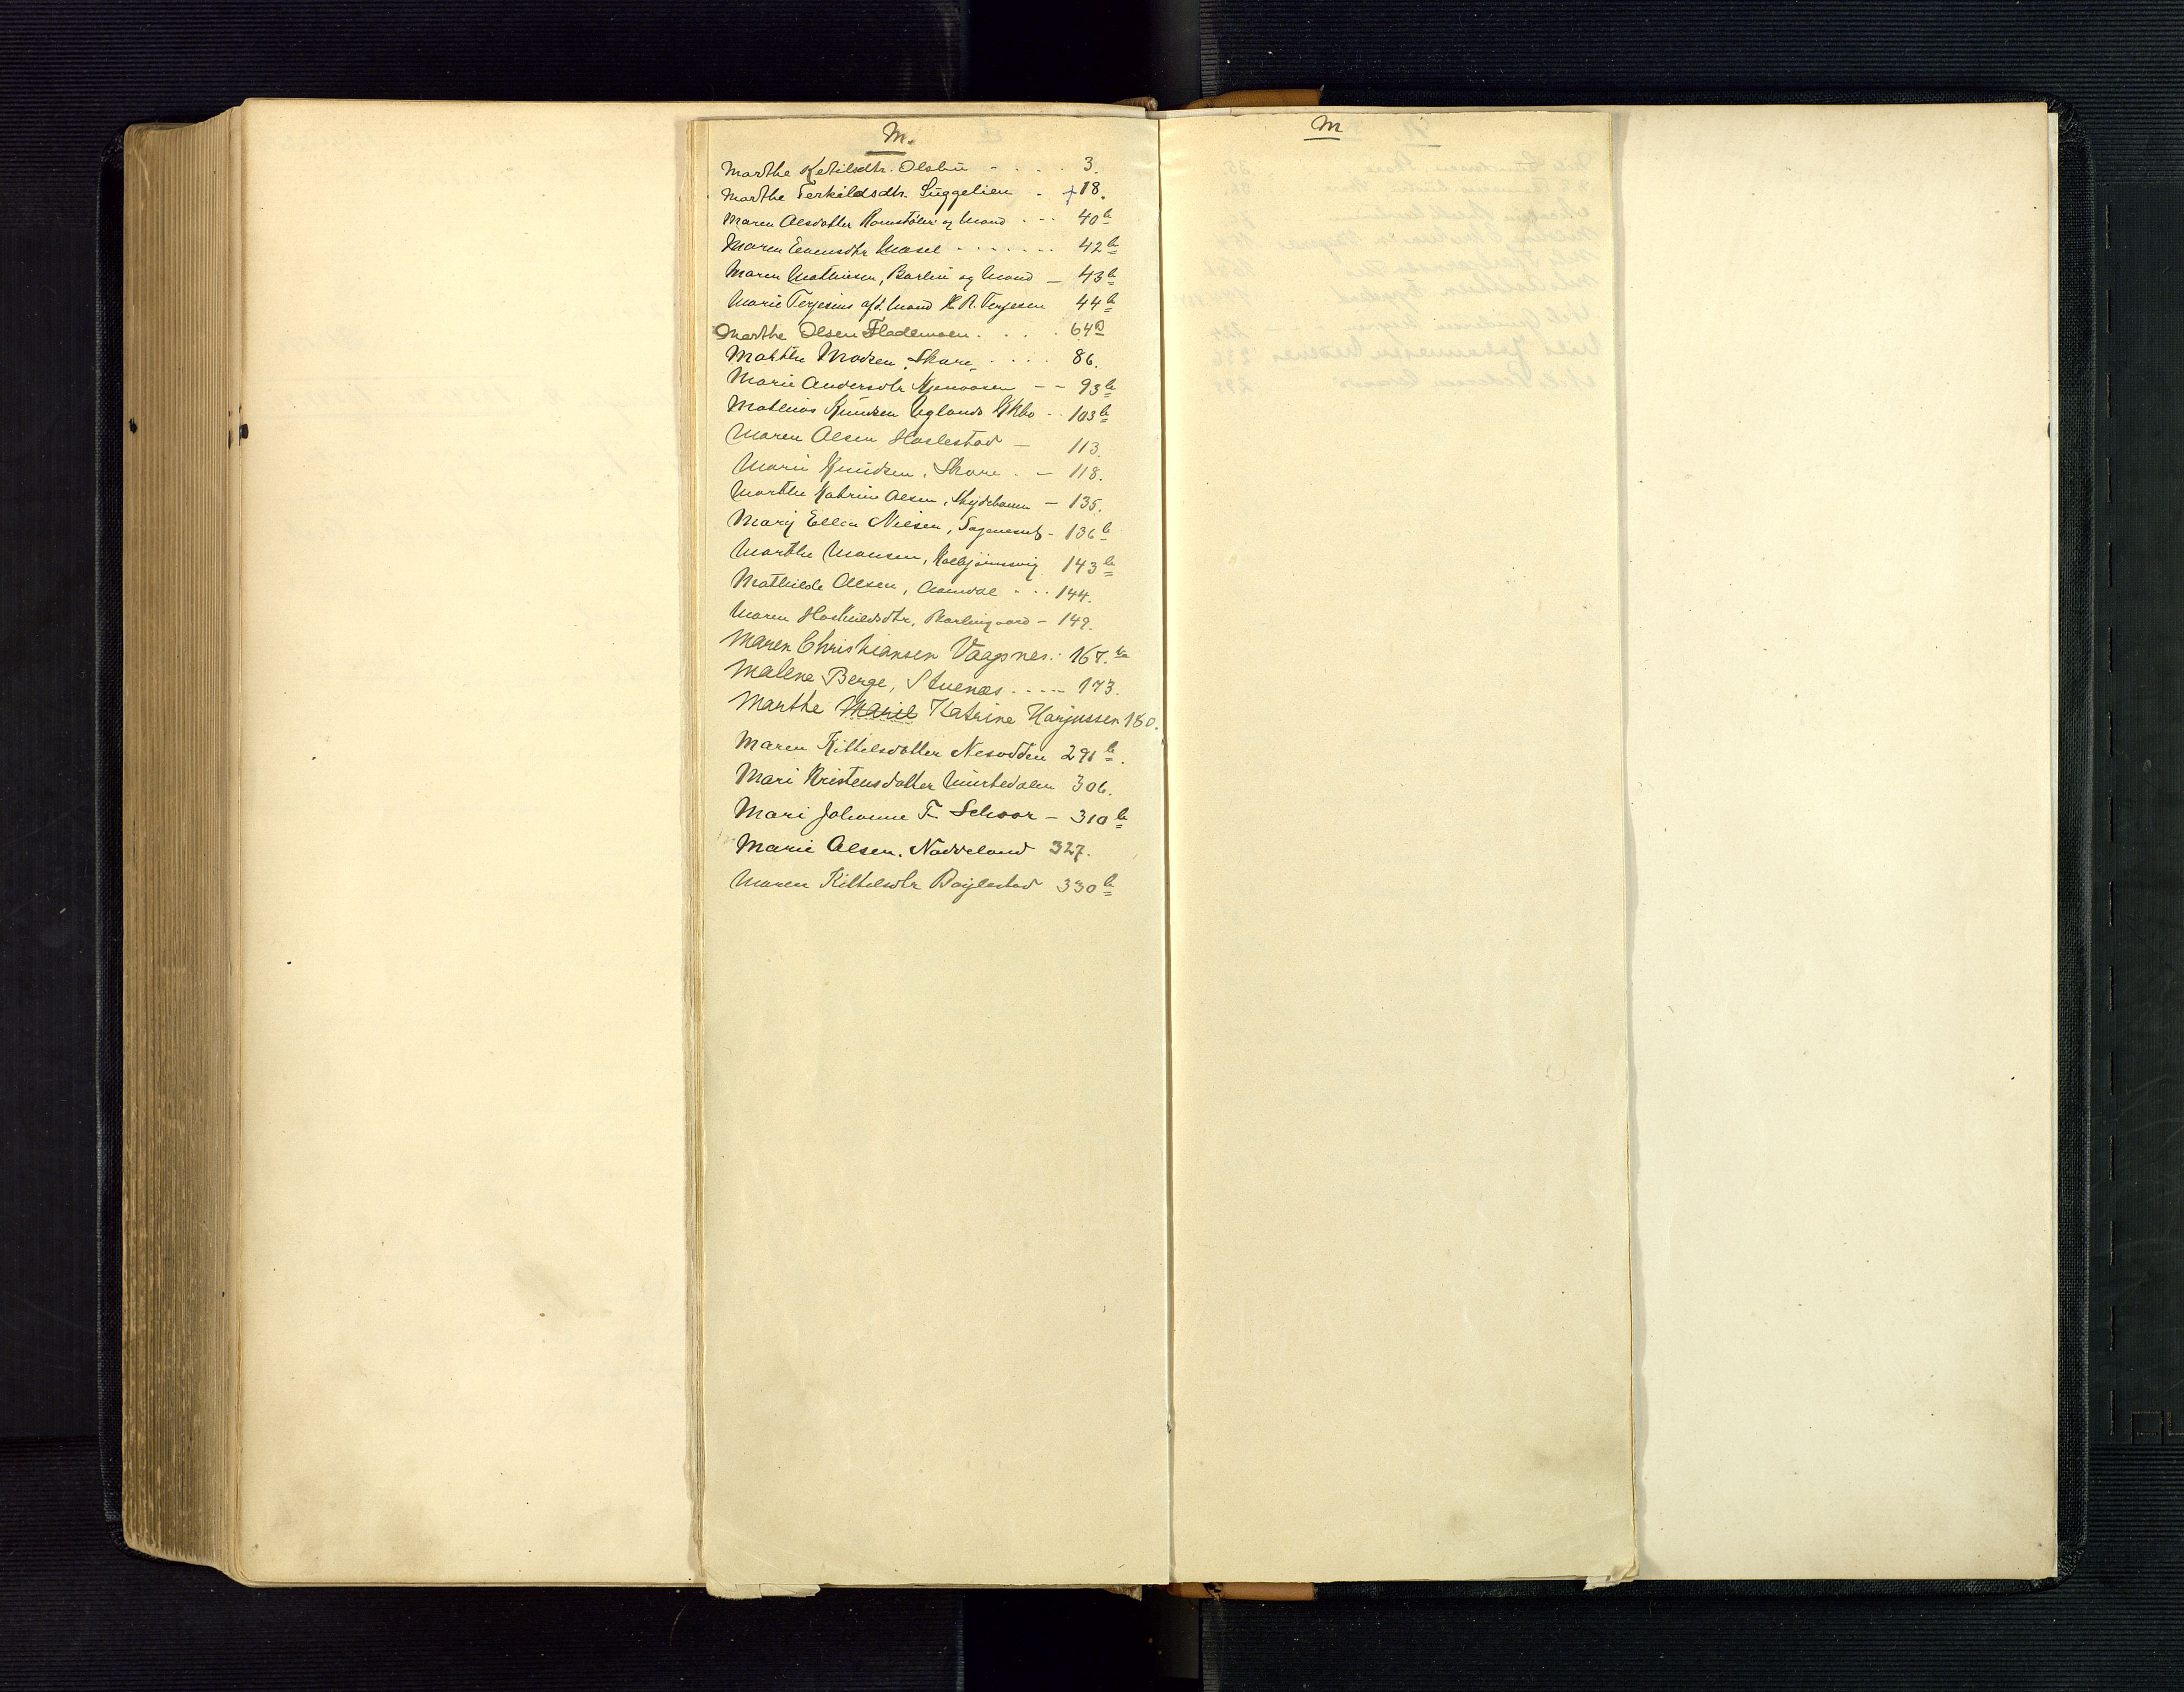 M.
Marthe Ketilsdtr. Olsbu - . . . 3.
Marthe Terkildsdtr. Suggelien . +18.
Maren Olsdatter Ramstølen og Mand - - - 40b
Maren Evensdtr Mosel - - - - - - - 42b
Maren Mathisen, Barbu og Mand - 43b
Marie Terjesens afd. Mand H. R. Terjesen 44b
Marthe Olsen Flademoen . . . . 64b
Marthe Madsen, Skare - - - - 86.
Marie Andersdtr - - 93b
Mathias Knudsen Uglands Ekbo - - 103b
Maren Olsen Haslestad - 113.
Marie Knudsen, Skare. - 118.
Marthe Katrine Olsen, - 135.
Mary Ellen Nilsen, - 136b
Marthe Monsen, Kolbjørnsvig 143b
Mathilde Olsen, Aamdal - - - 144.
Maren Barlingaard - 149.
Maren Christiansen Vaagsnes. - 167.b
Malene Berge, Stuenes . . - - - 173.
Marthe Marie Katrine Harjussen 180.
Maren Kittelsdatter Nesodden 291b.
Mari Kristensdatter 306.
Mari Johanne F. Schaar - 310b
Marie Olsen. Nødveland 327.
Maren Kittelsdtr Bøylestad 330b
M